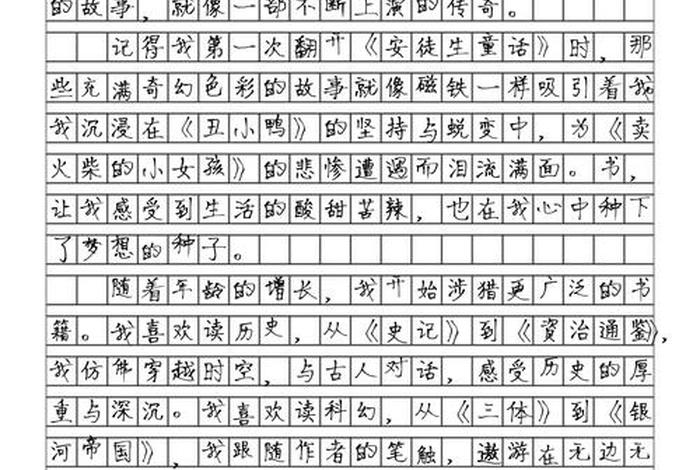 的故事，就像一部不断上演的传奇。
记得我第一次翻开《安徒生童话》时，那
些充满奇幻色彩的故事就像磁铁一样吸引着我
我沉浸在《丑小鸭》的坚持与蜕变中，为《卖
火柴的小女孩》的悲惨遭遇而泪流满面。书，
让我感受到生活的酸甜苦辣，也在我心中种下
了梦想的种子。
随着年龄的增长，我开始涉猎更广泛的书
籍。我喜欢读历史，从《史记》到《资治通鉴》，
我仿佛穿越时空，与古人对话，感受历史的厚
重与深沉。我喜欢读科幻，从《三体》到《银
河帝国》，我跟随作者的笔触，遨游在无边无